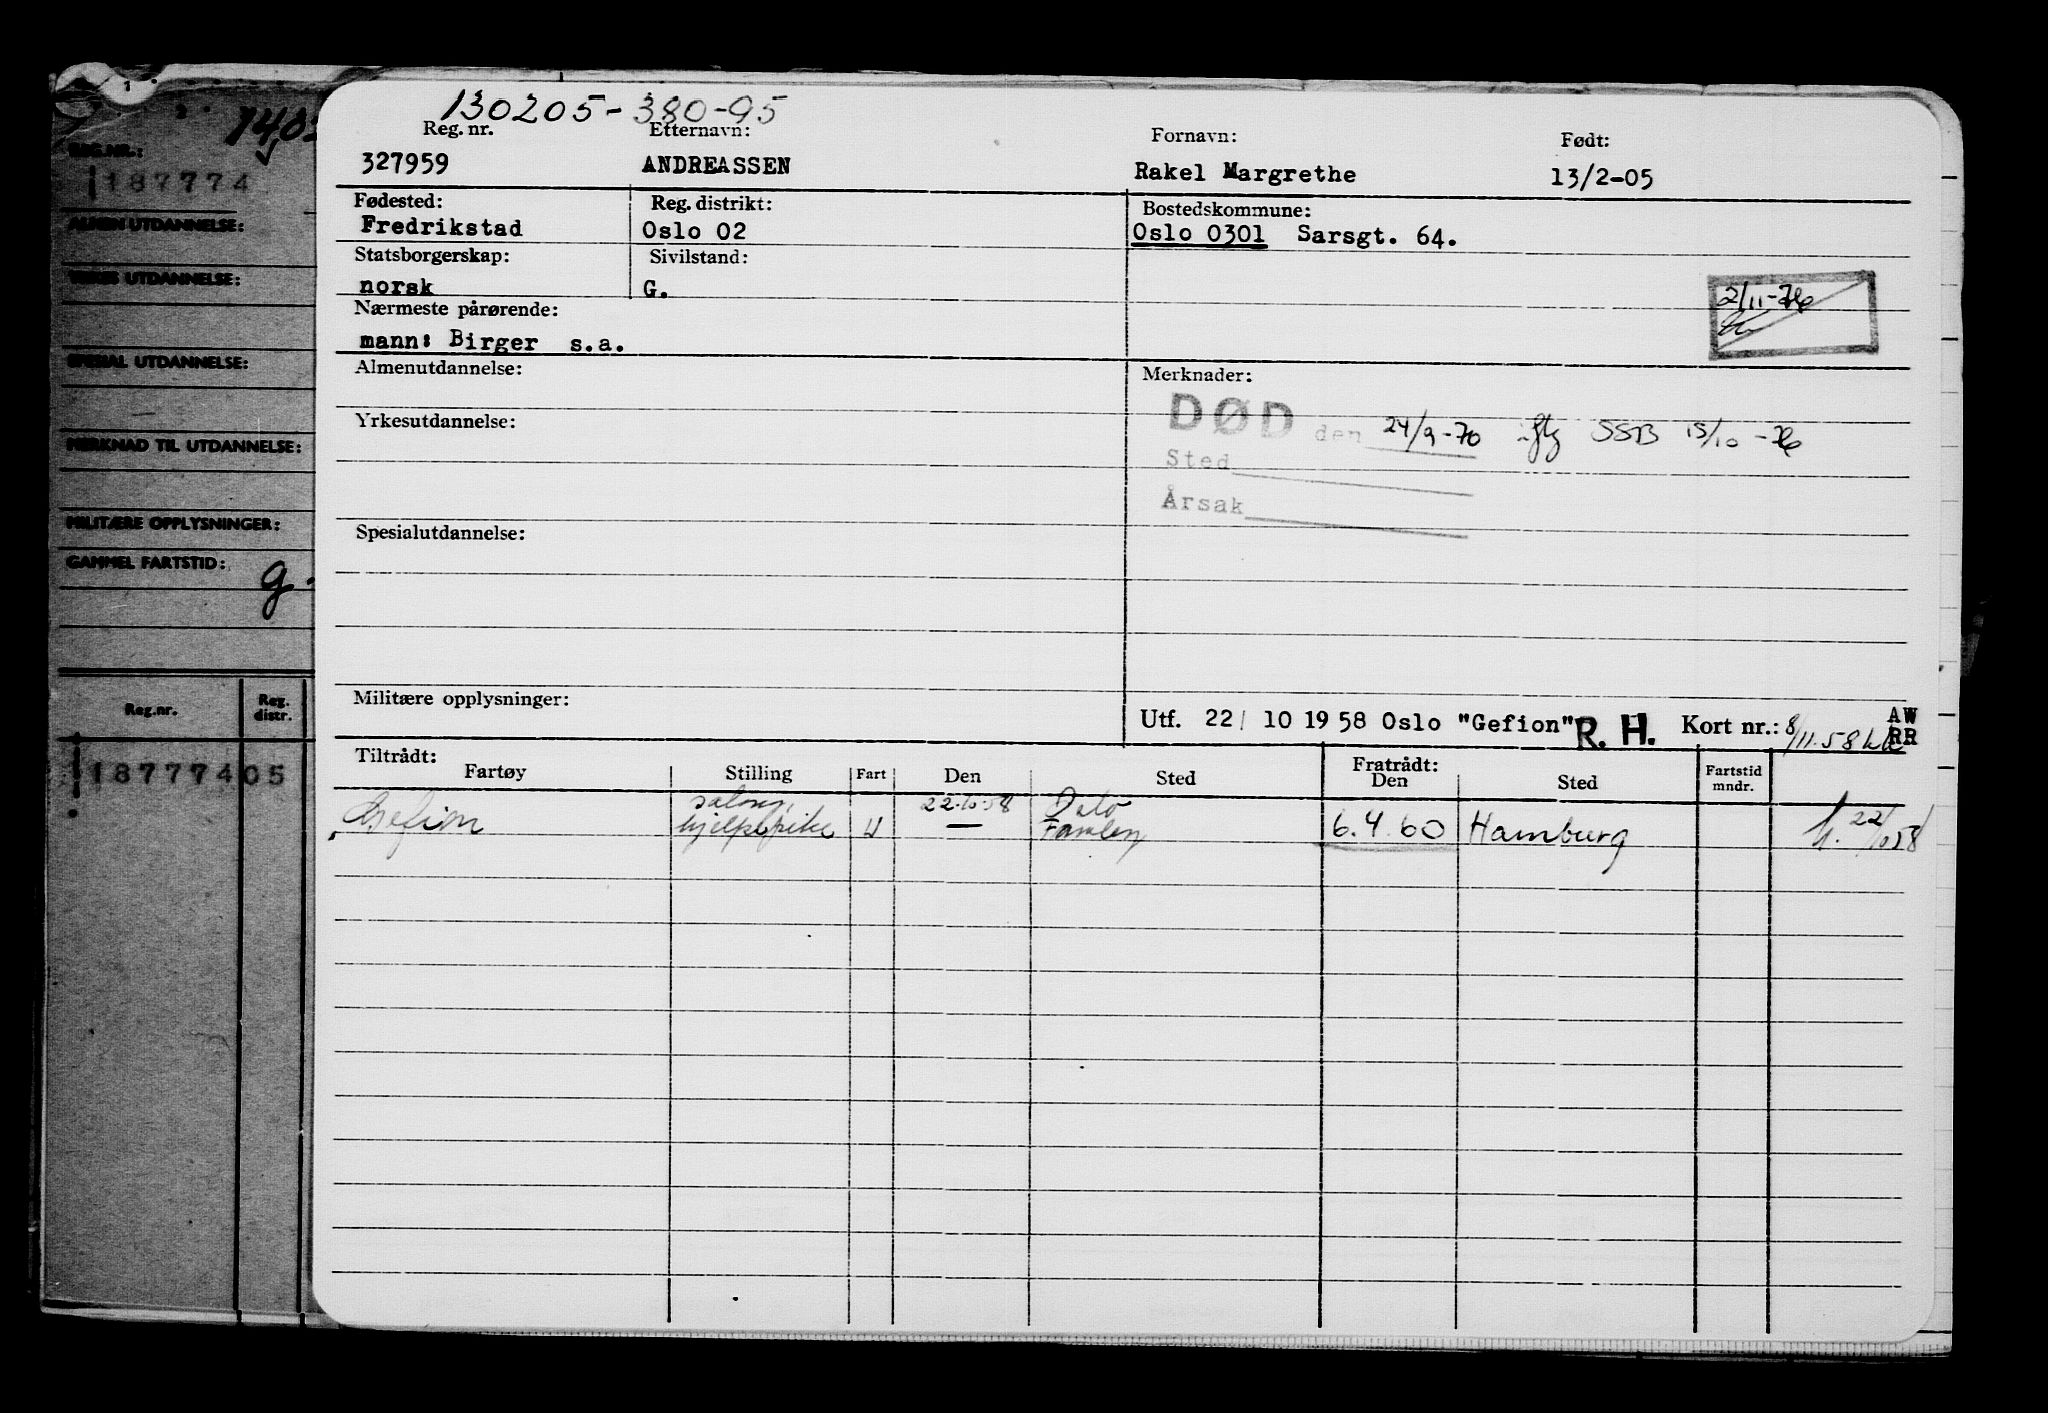 130205-380-95
Reg. nr. Etternavn: Fornavn: Født:
327959 ANDREASSEN Rakel Margrethe 13/2-05
Fødested: Reg. distrikt: Bostedskommune:
Fredrikstad Oslo 02 Oslo 0301 Sarsgt. 64.
Statsborgerskap: Sivilstand:
norsk G.
2/11-76
Nærmeste pårørende:
mann: Birger s.a.
Almenutdannelse: Merknader:
DØD den 24/9-70 iflg SSB 15/10-76
Yrkesutdannelse:
Sted
Årsak
Spesialutdannelse:
Militære opplysninger:
Utf. 22/ 10 1958 Oslo "Gefion" R. H. Kort nr.: 8/11.58 AW
RR
Tiltrådt: Fratrådt:
Fartøy Stilling Fart Den Sted Den Sted Fartstid mndr.
Gefion salong, hjelpepike U 22.10.58 Oslo 6.4.60 Hamburg 22/10 58
—
REG.NR.: 7403
187774
ALMEN UTDANNELSE:
YRKES UTDANNELSE:
SPESIAL UTDANNELSE:
MERKNAD TIL UTDANNELSE:
MILITÆRE OPPLYSNINGER:
GAMMEL FARTSTID: g.
Reg.nr. Reg. distr.
187774 05